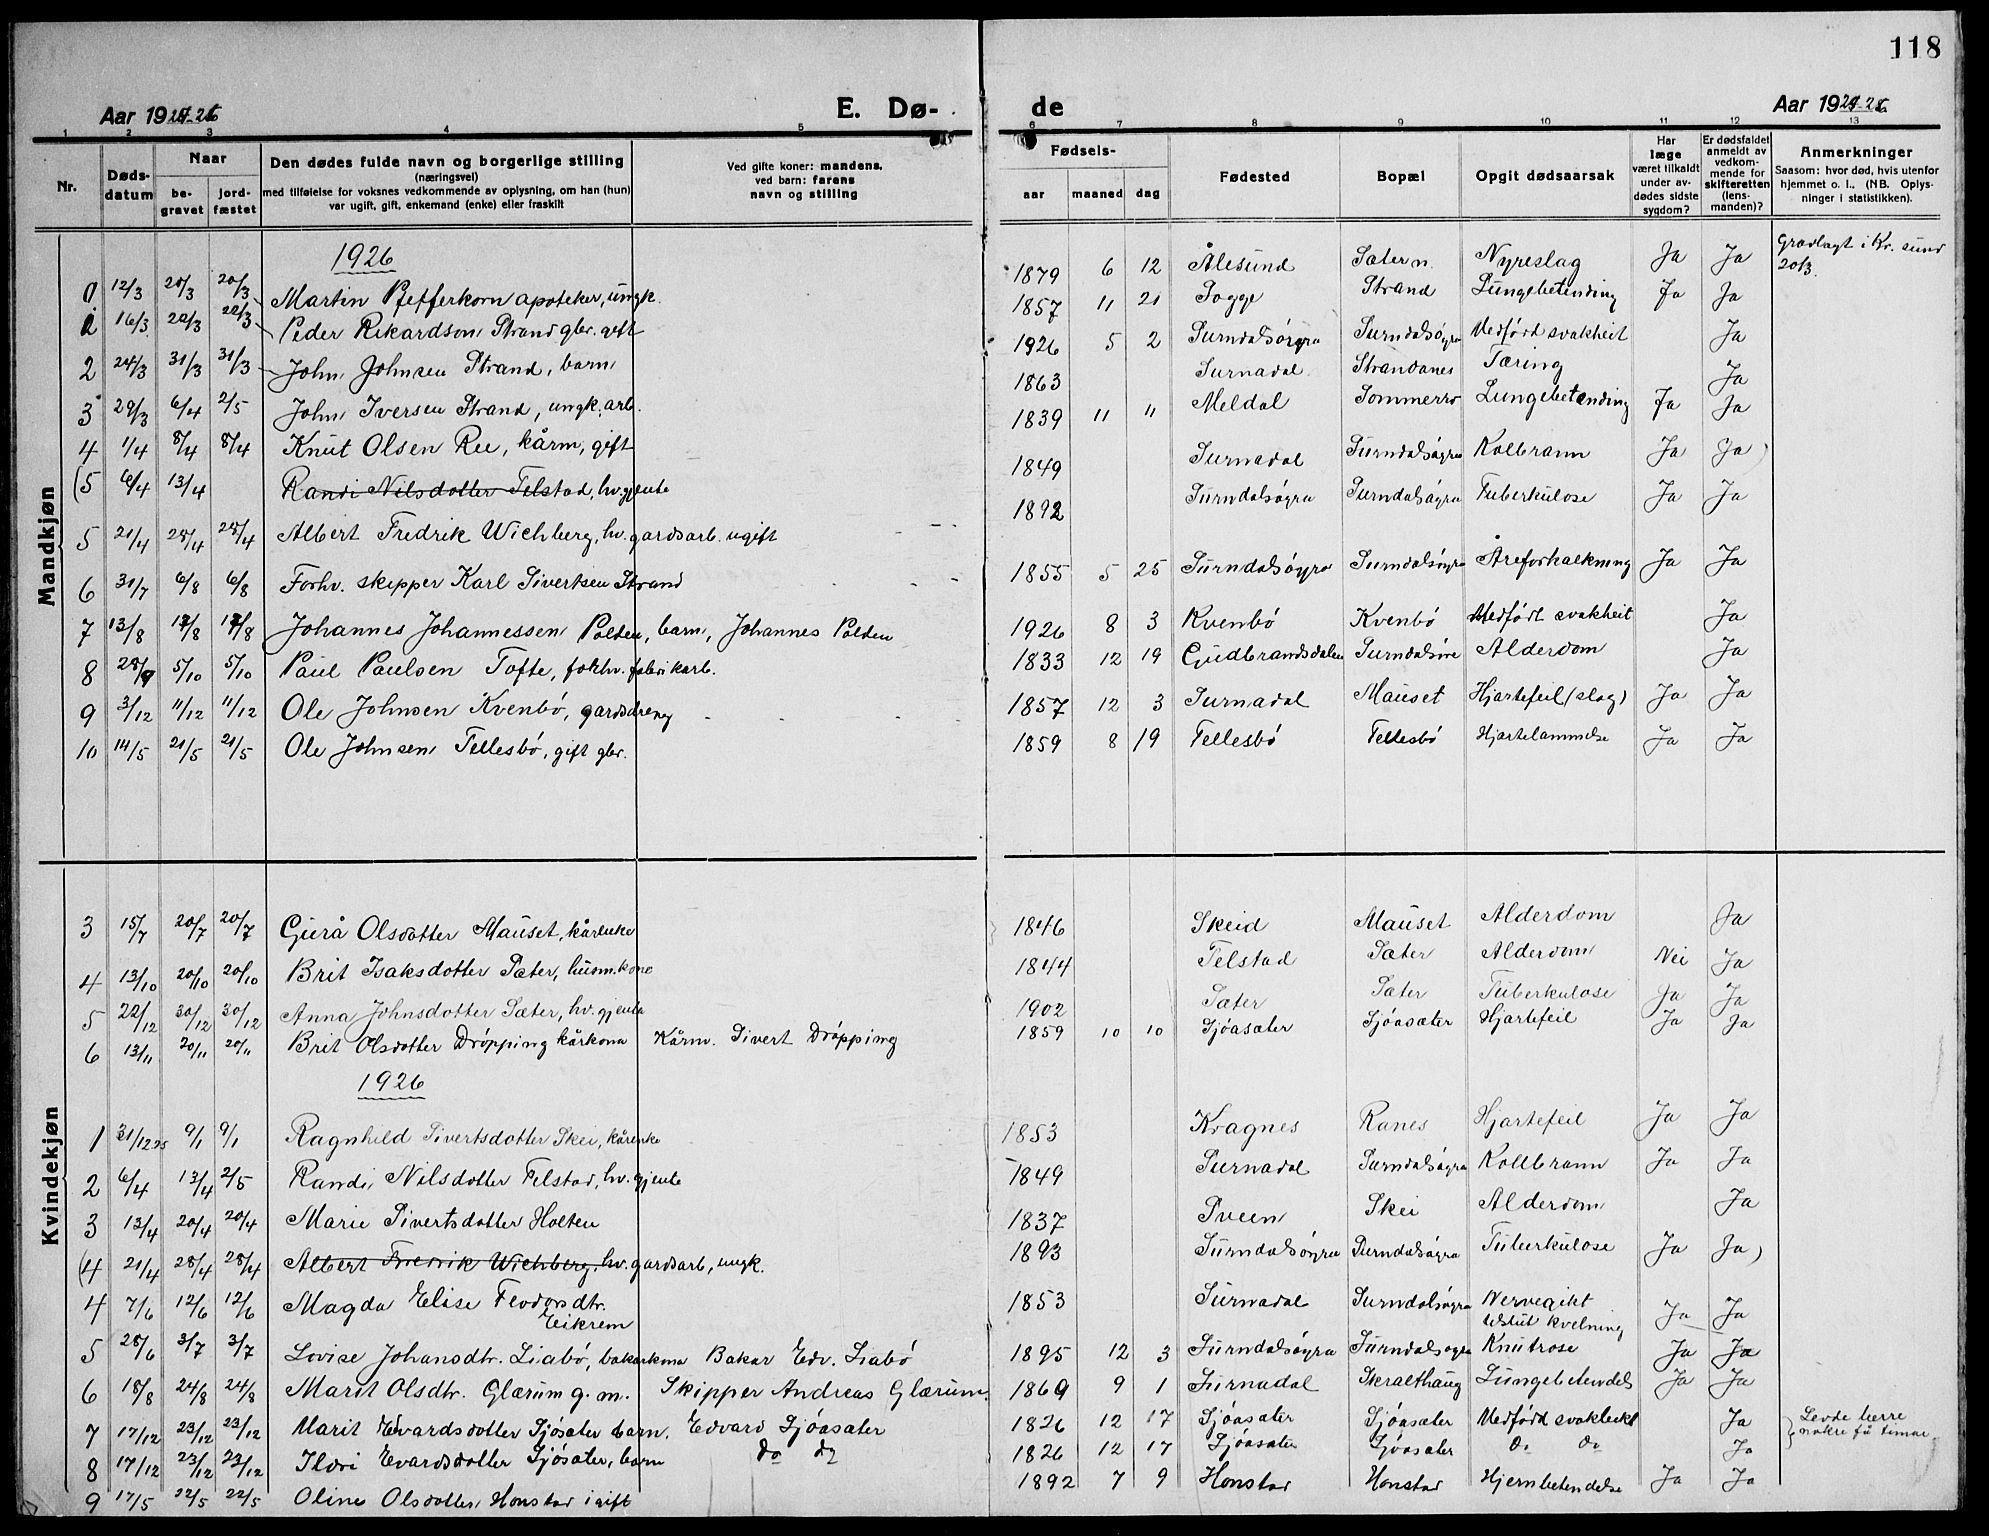 118
Aar 1924-26 E. Dø- de Aar 1924-26
1 2 3 4 5 6 7 8 9 10 11 12 13
Nr. Døds-datum Naar be-gravet jord-fæstet Den dødes fulde navn og borgerlige stilling (næringsvei) med tilføielse for voksnes vedkommende av oplysning, om han (hun) var ugift, gift, enkemand (enke) eller fraskilt Ved gifte koner: mandens, ved barn: farens navn og stilling Fødsels- aar maaned dag Fødested Bopæl Opgit dødsaarsak Har læge været tilkaldt under av-dødes sidste sygdom? Er dødsfaldet anmeldt av vedkom-mende for skifteretten (lens-manden)? Anmerkninger Saasom: hvor død, hvis utenfor hjemmet o. l., (NB. Oplys-ninger i statistikken).
Mandkjøn
1926
1 12/3 20/3 20/3 Martin Pfefferkorn apoteker, ungk. 1879 6 12 Ålesund Sætern Nyreslag Ja Ja Gravlagt i Kr. sund 20/3.
2 16/3 22/3 22/3 Peder Rikardson Strand gbr. gift 1857 11 21 Togge Strand Lungebetending Ja Ja
2 24/3 31/3 31/3 John Johnsen Strand, barn 1926 5 2 Surndalsøra Surndalsøyra Medfødt svakheit Ja
3 29/3 6/4 2/5 John Iversen Strand, ungk. arb. 1863 Surnadal Strandanes Tæring Ja
4 1/4 8/4 8/4 Knut Olsen Ree, kårm, gift 1839 11 11 Meldal Sommerro Lungebetending Ja Ja
(5 6/4 13/4 Randi Nilsdotter Telstad, hv. gjente 1849 Surnadal Surndalsøyra Kolbrann Ja Ja)
5 21/4 28/4 28/4 Albert Fredrik Wichberg, hv. gardsarb. ugift 1892 Surndalsøyra Surndalsøyra Tuberkulose Ja Ja
6 31/7 6/8 6/8 Forhv. skipper Karl Sivertsen Strand 1855 5 25 Surndalsøyra Surndalsøyra Åreforkalkning Ja Ja
7 13/8 17/8 17/8 Johannes Johannessen Polden, barn, Johannes Polden 1926 8 3 Kvenbø Kvenbø Medfødt svakheit Ja
8 28/9 5/10 5/10 Paul Paulsen Tofte, forhv. fabrikarb. 1833 12 19 Gudbrandsdalen Surndalsøre Alderdom Ja
9 3/12 11/12 11/12 Ole Johnsen Kvenbø, gardsdreng 1857 12 3 Surnadal Mauset Hjartefeil (slag) Ja Ja
10 14/5 21/5 21/5 Ole Johnsen Tellesbø, gift gbr. 1859 8 19 Tellesbø Tellesbø Hjartelammelse Ja Ja
Kvindekjøn
3 15/7 20/7 20/7 Gurå Olsdotter Mauset, kårenke 1846 Skeid Mauset Alderdom Ja
4 13/10 20/10 20/10 Brit Isaksdotter Sæter, husm. kone 1844 Telstad Sæter Alderdom Nei Ja
5 22/12 30/12 30/12 Anna Johnsdotter Sæter, hv. gjente 1902 Sæter Sæter Tuberkulose Ja Ja
6 13/11 20/11 20/11 Brit Olsdotter Drøpping kårkona Kårm. Sivert Drøpping 1859 10 10 Sjøasæter Sjøasæter Hjartefeil Ja Ja
1926
1 31/12.25 9/1 9/1 Ragnhild Sivertsdotter Skei, kårenke 1853 Kragnes Ranes Hjartefeil Ja Ja
2 6/4 13/4 2/5 Randi Nilsdotter Telstad, hv. gjente 1849 Surnadal Surndalsøyra Kollbrann Ja Ja
3 13/4 20/4 20/4 Marie Sivertsdotter Holten 1837 Sveen Skei Alderdom Ja
(4 21/4 28/4 28/4 Albert Fredrik Wichberg, hv. gardsarb, ungk. 1893 Surndalsøyra Surndalsøyra Tuberkulose Ja Ja)
4 7/6 12/6 12/6 Magda Elise Fladorsdtr. 1853 Surnadal Surndalsøyra Nervegikt Ja Ja
Eikrem tilslut kvelning
5 28/6 3/7 3/7 Lovise Johansdtr. Liabø, bakarkona Bakar Edv. Liabø 1895 12 3 Surndalsøyra Surndalsøyra Knutrose Ja Ja
6 18/8 24/8 24/8 Marit Olsdtr. Glærum g. m. Skipper Andreas Glærum. 1869 9 1 Surnadal Skralthaug Lungebetendels Ja Ja
7 17/12 23/12 23/12 Marit Edvardsdotter Sjøsæter barn. Edvard Sjøasæter 1826 12 17 Sjøasæter Sjøasæter Medfødd svakleikt Ja Levde berre
nokre få timar.
8 17/12 23/12 23/12 Ildri Evardsdotter Sjøsæter, barn do do 1826 12 17 Sjøasæter Sjøasæter do do Ja
9 17/5 22/5 22/5 Oline Olsdotter Honstad i gift 1892 7 9 Honstad Honstad Hjernbetendelse Ja Ja